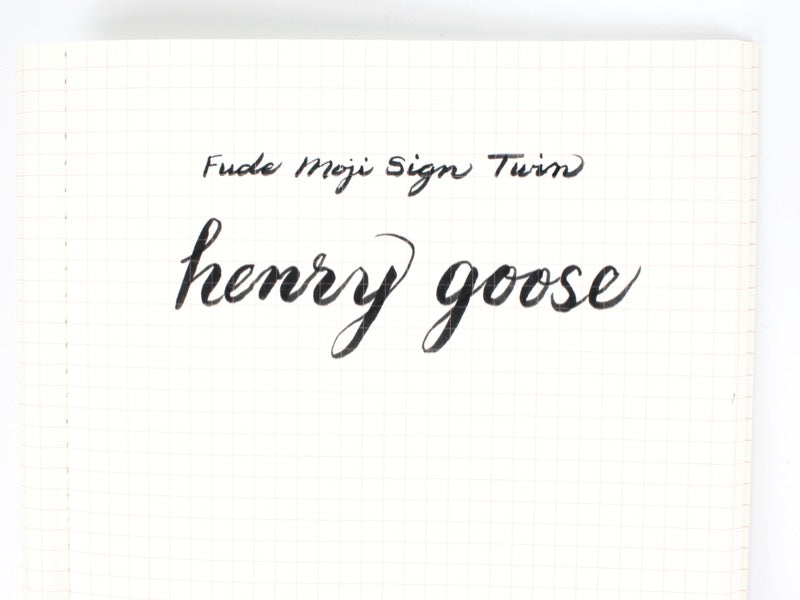 Fude Moji Sign Twin
henry goose